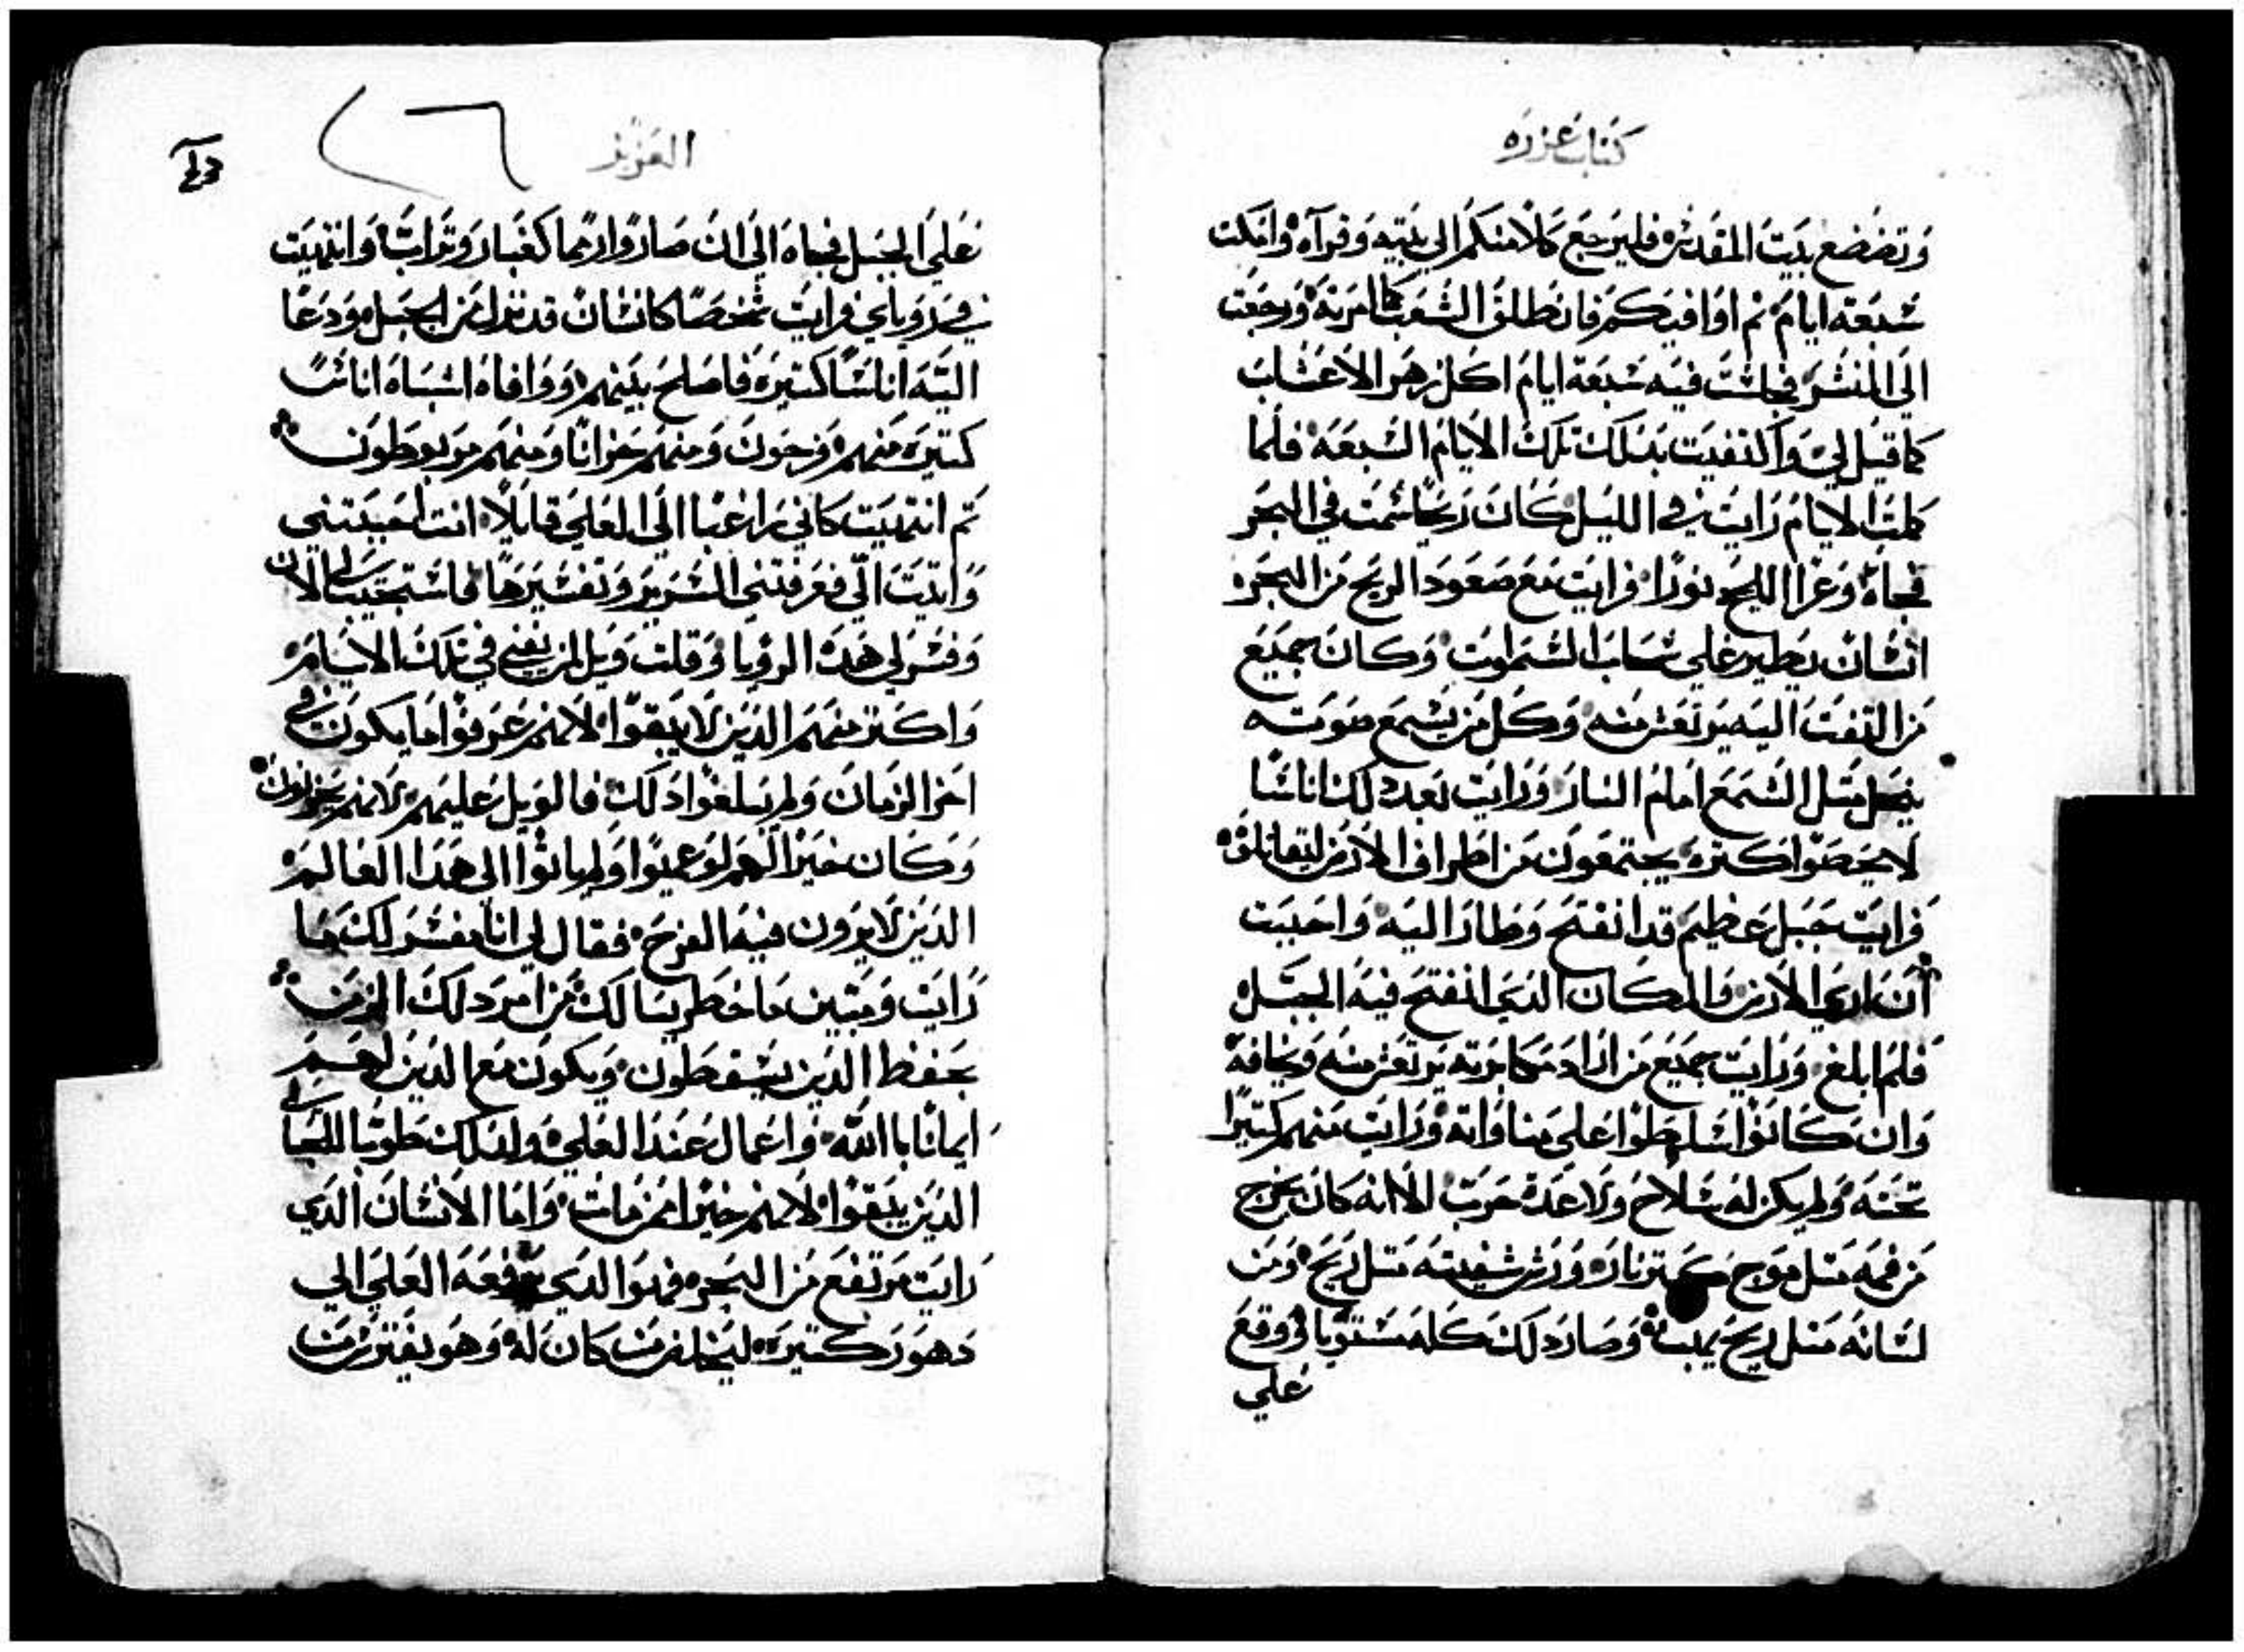 كتاب عزره
وتضضع بيت المقدس فليرجع كلا منكم الي بيته وقرآه وامكت
سبعة ايام تم اوافيكم فانطلق الشعب كما امرته ورجعت
الي المنشر فجلست فيه سبعة ايام اكل زهر الاعشاب
كما قيل لي واكتفيت بدلك تلك الايام السبعه فلما
كملت الايام رايت في الليل كان ريحا شمت في البحر
فجاه وعزا الليح نورا فرايت مع صعود الريح من البحر
انسان يطير علي سحاب السموات وكان جميع
من التفت اليه يرتعش منه وكل من يسمع صوته
ينحل متل الشمع امام النار ورايت بعد دلك اناسا
لا يحصوا كتره يجتمعون من اطراف الارض ليقاتلوه
فرايت جبل عظيم قد انفتح وطار اليه واحببت
ان اري الارض والمكان الدي انفتح فيه الجبل
فلم ابلغ ورايت جميع من اراد مكابرته يرتعش منه ويخافه
وان كانوا تسلطوا علي مناواته ورايت منهم كتيرا
تحته ولم يكن له سلاح ولا عدة حرب الا انه كان يخرج
من فمه متل موج نار ومن شفيته متل ريح ومن
لسانه متل ريح يهب وصار دلك كله مستويا ووقع
علي
العزيز
علي الجبل فجاه الي ان صاروا رمما كغبار وتراب وانتهيت
في روياي فرايت شخصا كانسان قد نزل من الجبل ودعا
اليه اناسا كتيره فاصلح بينهم ووافاه اشباه اناسا
كتيره منهم فرحون ومنهم حزانا ومنهم مربوطون
تم انتهيت كاني راغبا الي العلي قايلا انت لعبدتني
واتيت الي فعرفتني السرير وتفسيرها فاستجيب لي الان
وفسر لي هده الرويا وقلت ويل لمن يفني في تلك الايام
واكتر منهم الدين لا يبقوا لانهم عرفوا ما يكون في
اخر الزمان ولم يبلغوا دلك فالويل عليهم لانهم يحزنون
وكان خيرا لهم لو عميوا ولم ياتوا الي هدا العالم
الدين لا يرون فيه الفرح فقال لي انا مفسر لك ما
رايت ومبين ما خطر ببالك من امر دلك الزمن
بحفظ الدين يسقطون ويكون مع الدين لهم
ايمانا باالله واعمال عند العلي ولدلك طوبا للي
الدين يبقوا لانهم خيرا ممن مات واما الانسان الدي
رايت مرتفع من البحر فهوا الدي رفعه العلي الي
دهور كتيره ليخلص من كان له وهو يفترس من